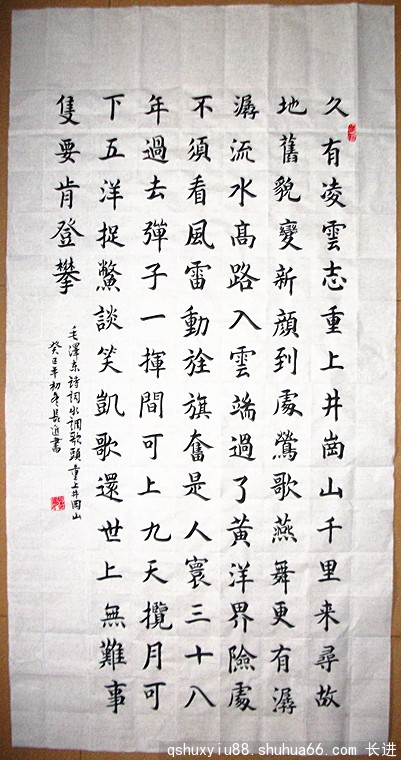 久有凌雲志重上井崗山千里来尋故
地舊貌變新顔到處鶯歌燕舞更有潺
潺流水髙路入雲端過了黄洋界險處
不須看風雷動旌旗奮是人寰三十八
年過去彈子一揮間可上九天攬月可
下五洋捉鱉談笑凱歌還世上無難事
隻要肯登攀
毛澤东詩詞水調歌頭重上井岡山
癸巳年初冬長進書
qshuxyiu88.shuhua66.com 长进